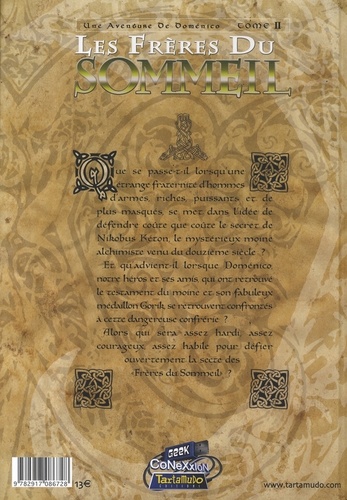 Une Aventure De Domenico TOME II
LES FRÈRES DU
SOMMEIL
Que se passe-t-il lorsqu'une
étrange fraternité d'hommes
d'armes, riches, puissants et de
plus masqués, se met dans l'idée de
défendre coûte que coûte le secret de
Nikobus Kéron, le mystérieux moine
alchimiste venu du douzième siècle ?
Et qu'advient-il lorsque Doménico,
notre héros et ses amis qui ont retrouvé
le testament du moine et son fabuleux
medaillon Gorik, se retrouvent confrontés
à cette dangereuse confrérie ?
Alors qui sera assez hardi, assez
courageux, assez habile pour défier
ouvertement la secte des
«Frères du Sommeil» ?
GEEK
CoNeXxion
TartaMudo
EDITIONS
9 782917 086728
13€
www.tartamudo.com